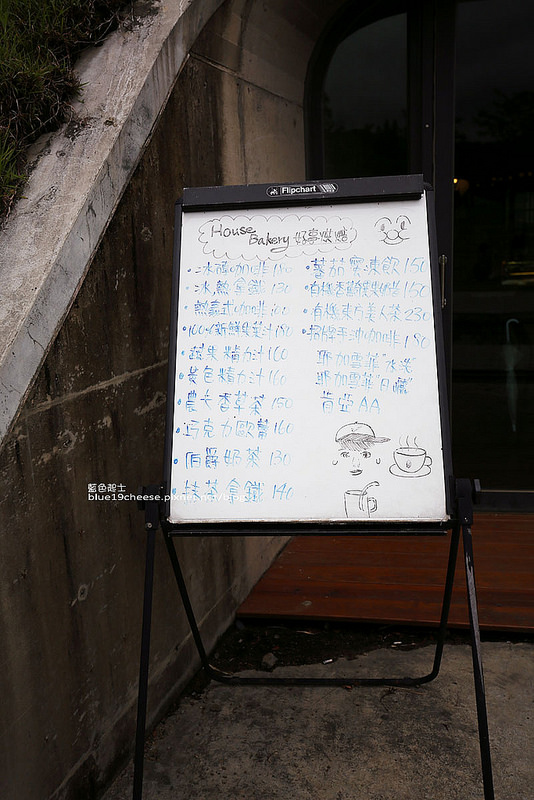 Flipchart
House
Bakery 好夢烘焙
•冰滴咖啡180
•冰,熱拿鐵130
•熱美式咖啡100
•100%新鮮果菜汁180
•蔬果精力汁160
•黃色精力汁160
•農夫香草茶150
•巧克力歐蕾160
•伯爵奶茶130
•抹茶拿鐵140
•蕃茄 凍飲150
•有機 150
•有機東方美人茶230
•招牌手沖咖啡180
耶加雪菲"水洗"
耶加雪菲"日曬"
肯亞AA
藍色起士
blue19cheese.pixnet.net/blog